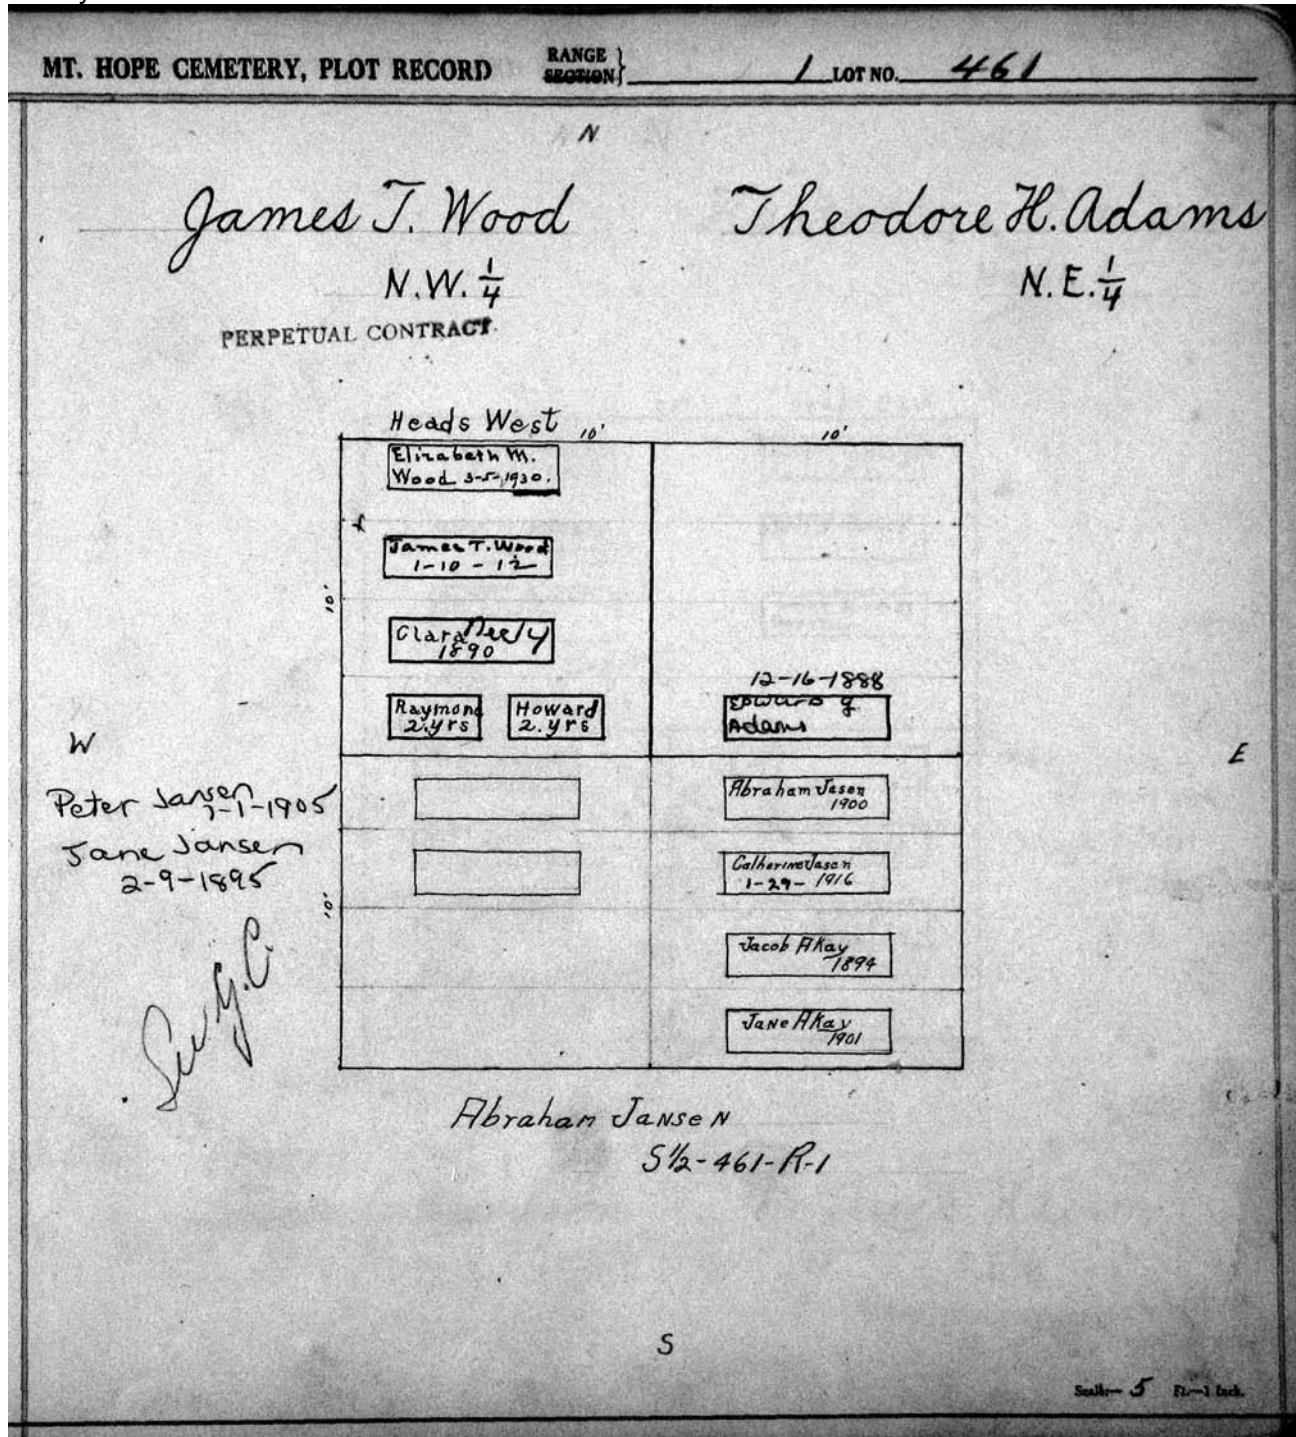 MT. HOPE CEMETERY, PLOT RECORD RANGE SECTION } 1 LOT NO. 461
N
James T. Wood
N.W. 1/4
PERPETUAL CONTRACT.
Theodore H. Adams
N.E. 1/4
Heads West
10'
10'
Elizabeth M.
Wood 3-5-1930.
James T. Wood
1-10-12
10'
Clara Neely
1890
Raymond
2.yrs
Howard
2.yrs
12-16-1888
Edward J.
Adams
W
E
Peter Jansen
7-1-1905
Jane Jansen
2-9-1895
Abraham Jasen
1900
Catherine Jasen
1-29-1916
10'
Jacob AKay
1894
Jane AKay
1901
Abraham Jansen
S 1/2-461-R-1
S
Scale:— 5 Ft.—1 Inch.